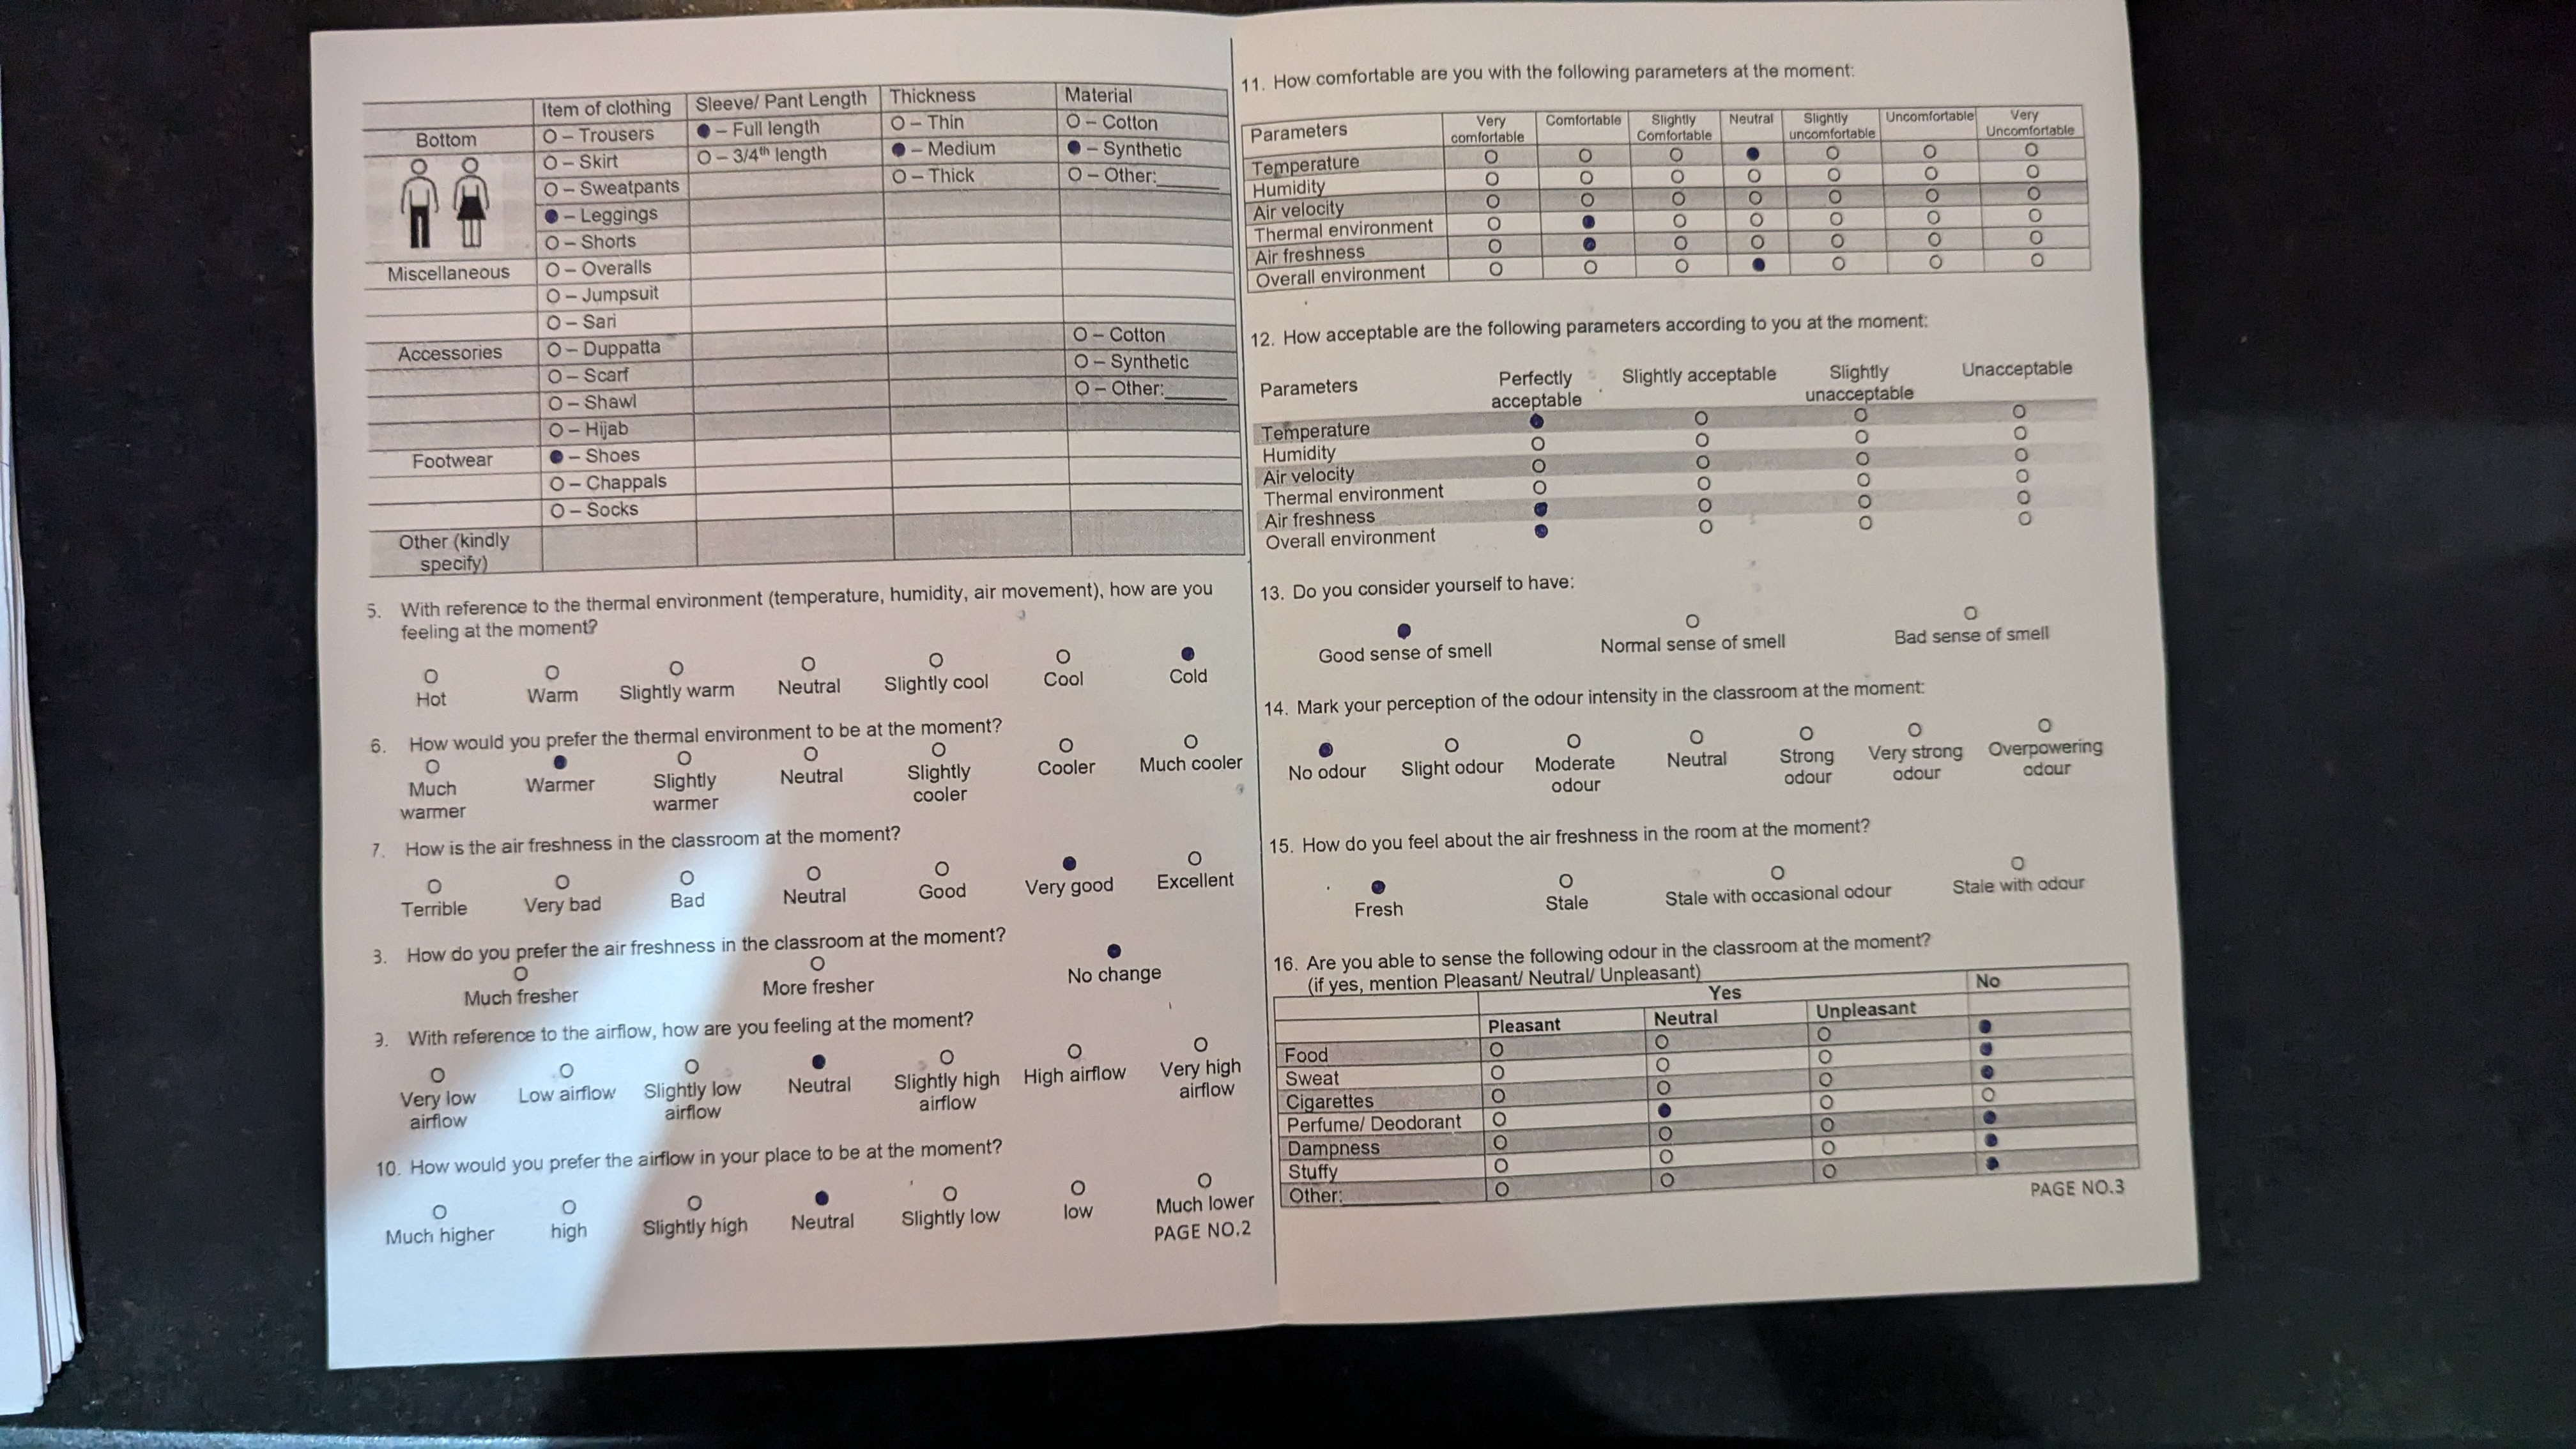 Item of clothing Sleeve/ Pant Length Thickness Material
Bottom O – Trousers ● – Full length O – Thin O – Cotton
O – Skirt O – 3/4th length ● – Medium ● – Synthetic
O – Sweatpants O – Thick O – Other:______
● – Leggings
O – Shorts
Miscellaneous O – Overalls
O – Jumpsuit
O – Sari
Accessories O – Duppatta O – Cotton
O – Scarf O – Synthetic
O – Shawl O – Other:______
O – Hijab
Footwear ● – Shoes
O – Chappals
O – Socks
Other (kindly
specify)
5. With reference to the thermal environment (temperature, humidity, air movement), how are you
feeling at the moment?
O O O O O O ●
Hot Warm Slightly warm Neutral Slightly cool Cool Cold
6. How would you prefer the thermal environment to be at the moment?
O ● O O O O O
Much Warmer Slightly Neutral Slightly Cooler Much cooler
warmer warmer cooler
7. How is the air freshness in the classroom at the moment?
O O O O O ● O
Terrible Very bad Bad Neutral Good Very good Excellent
3. How do you prefer the air freshness in the classroom at the moment?
O O ●
Much fresher More fresher No change
9. With reference to the airflow, how are you feeling at the moment?
O O O ● O O O
Very low Low airflow Slightly low Neutral Slightly high High airflow Very high
airflow airflow airflow airflow
10. How would you prefer the airflow in your place to be at the moment?
O O O ● O O O
Much higher high Slightly high Neutral Slightly low low Much lower
PAGE NO.2
11. How comfortable are you with the following parameters at the moment:
Parameters Very Comfortable Slightly Neutral Slightly Uncomfortable Very
comfortable Comfortable uncomfortable Uncomfortable
Temperature O O O ● O O O
Humidity O O O O O O O
Air velocity O O O O O O O
Thermal environment O ● O O O O O
Air freshness O ● O O O O O
Overall environment O O O ● O O O
12. How acceptable are the following parameters according to you at the moment:
Parameters Perfectly Slightly acceptable Slightly Unacceptable
acceptable unacceptable
Temperature ● O O O
Humidity O O O O
Air velocity O O O O
Thermal environment O O O O
Air freshness ● O O O
Overall environment ● O O O
13. Do you consider yourself to have:
● O O
Good sense of smell Normal sense of smell Bad sense of smell
14. Mark your perception of the odour intensity in the classroom at the moment:
● O O O O O O
No odour Slight odour Moderate Neutral Strong Very strong Overpowering
odour odour odour odour
15. How do you feel about the air freshness in the room at the moment?
● O O O
Fresh Stale Stale with occasional odour Stale with odour
16. Are you able to sense the following odour in the classroom at the moment?
(if yes, mention Pleasant/ Neutral/ Unpleasant)
Yes No
Pleasant Neutral Unpleasant
Food O O O ●
Sweat O O O ●
Cigarettes O O O ●
Perfume/ Deodorant O ● O O
Dampness O O O ●
Stuffy O O O ●
Other:______ O O O ●
PAGE NO.3